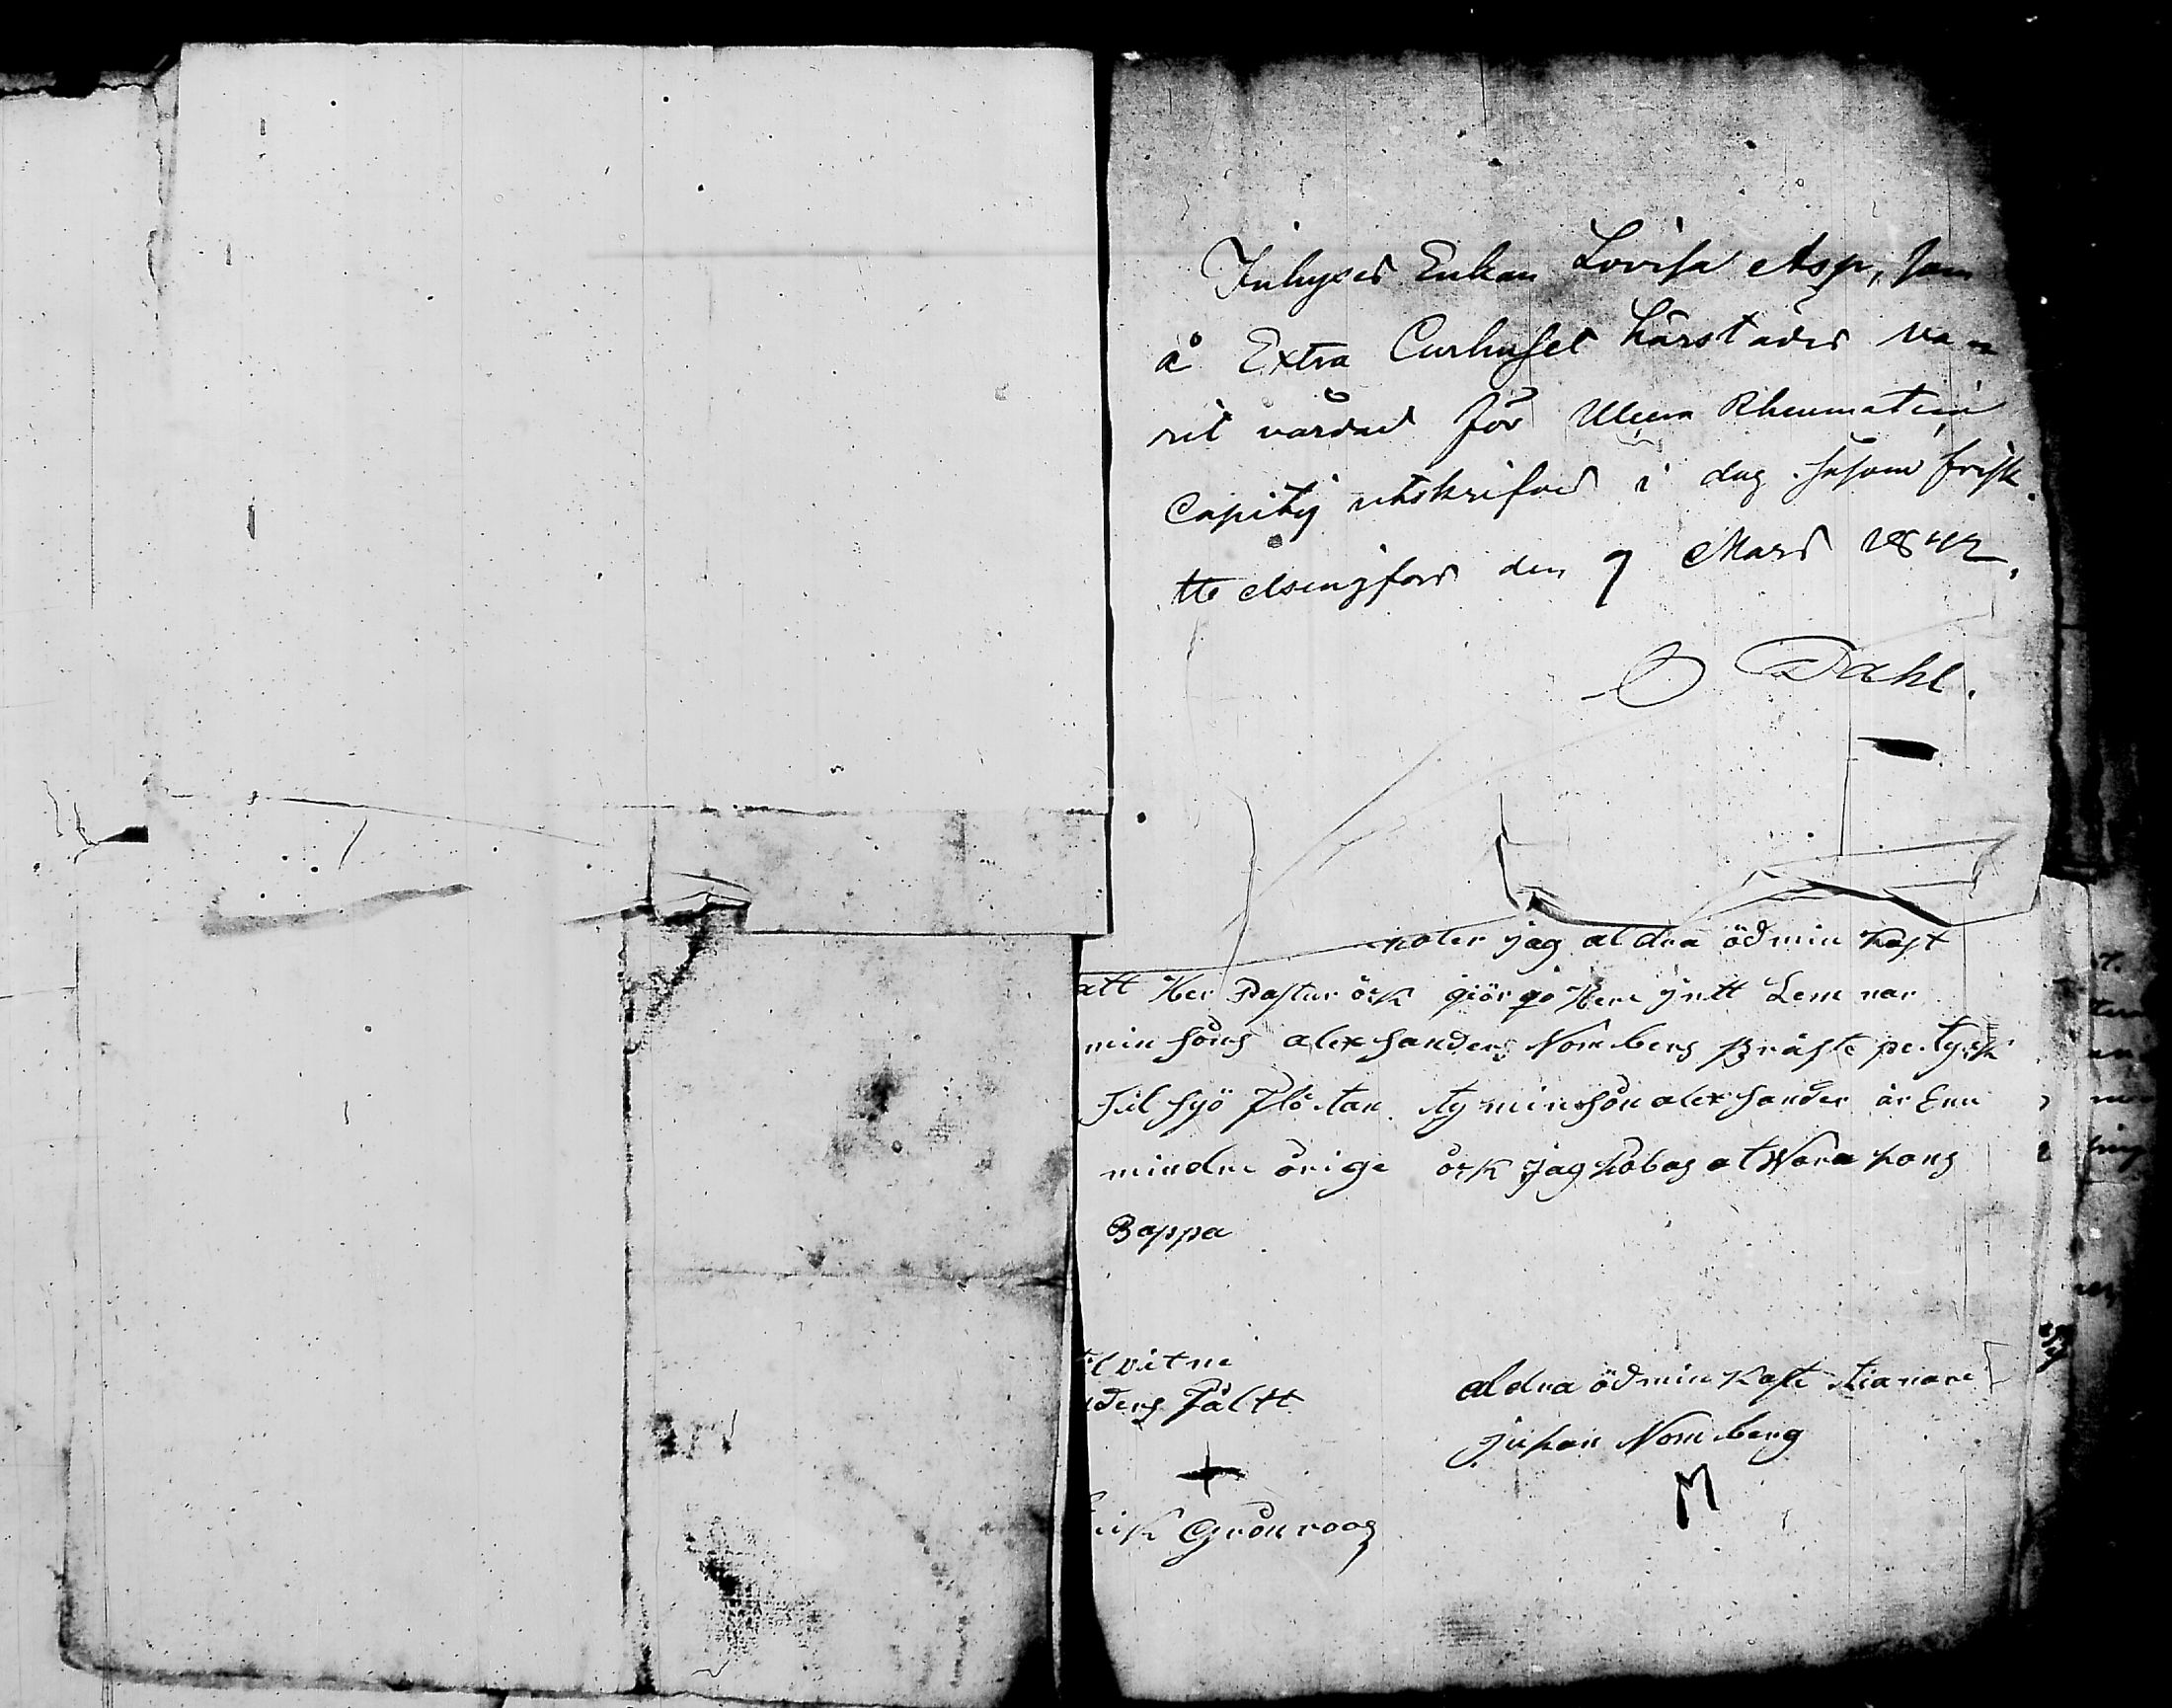 Inhyses Enkan Lovisa Asp, som
å Extra Curhuset härstädes va-
rit vårdad för Ulcera Rheumatica
Capitis utskrifves i dag såsom frisk.
Helsingfors den 7 Mars 1842.
Dahl.
noter jag aldra ödmin kast
att Her Pastur ösk giör gö Here
min sons alexsanders Nomberg Präste
Til Sjö Flo tan ty min son alexsander är Enn
mindre örige ösk jag hobas at Wara hans
Bappa
til vitne
ders Fält
rik Grönroos
aldra ödmin Kaste tianare
juhan Nomberg
M